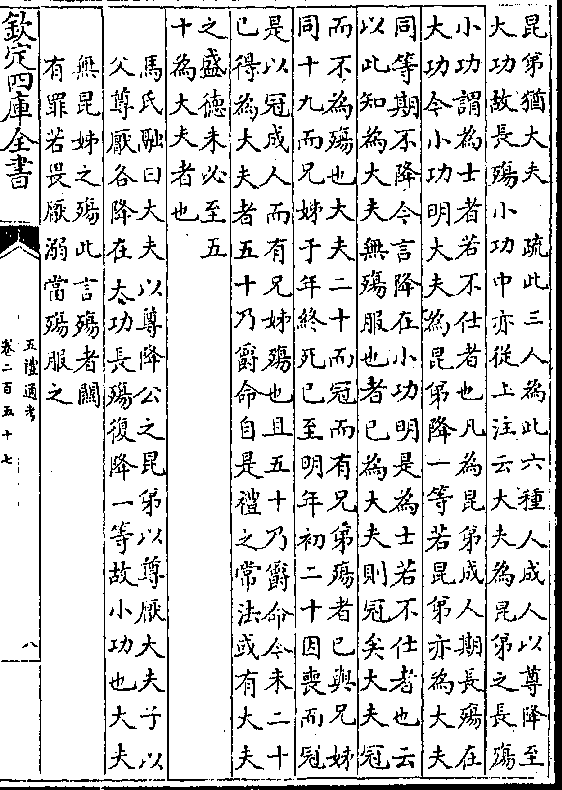 昆弟猶大夫　疏此三人為此六種人成人以尊降至
大功故長殤小功中亦從上注云大夫為昆弟之長殤
小功謂為士者若不仕者也凡為昆弟成人期長殤在
大功今小功明大夫為昆弟降一等若昆弟亦為大夫
同等期不降今言降在小功明是為士若不仕者也云
以此知為大夫無殤服也者已為大夫則冠矣大夫冠
而不為殤也大夫二十而冠而有兄弟殤者已與兄姊
同十九而兄姊于年終死已至明年初二十因喪而冠
是以冠成人而有兄姊殤也且五十乃爵命今未二十
已得為大夫者五十乃爵命自是禮之常法或有大夫
之盛德未必至五
十為大夫者也
馬氏融曰大夫以尊降公之昆弟以尊厭大夫子以
父尊厭各降在大功長殤復降一等故小功也大夫
無昆姊之殤此言殤者關
有罪若畏厭溺當殤服之
欽定四庫全書
五禮通考
卷二百五十七
八